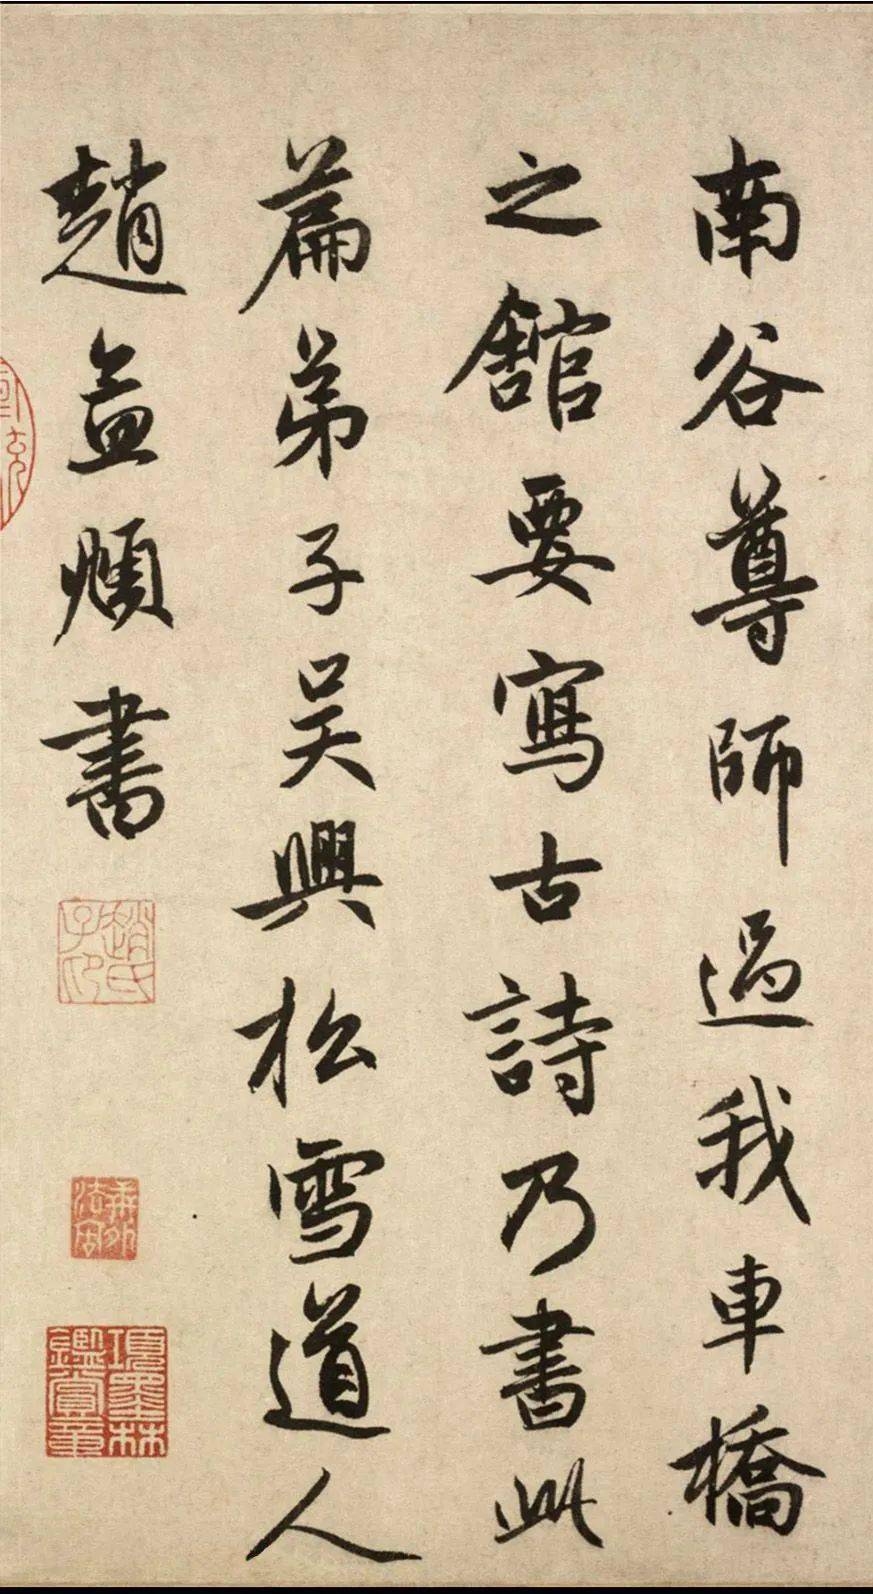 南谷尊師過我車橋
之舘要寫古詩乃書此
篇弟子吳興松雪道人
趙孟頫書
趙氏子印
項墨林鑑賞章